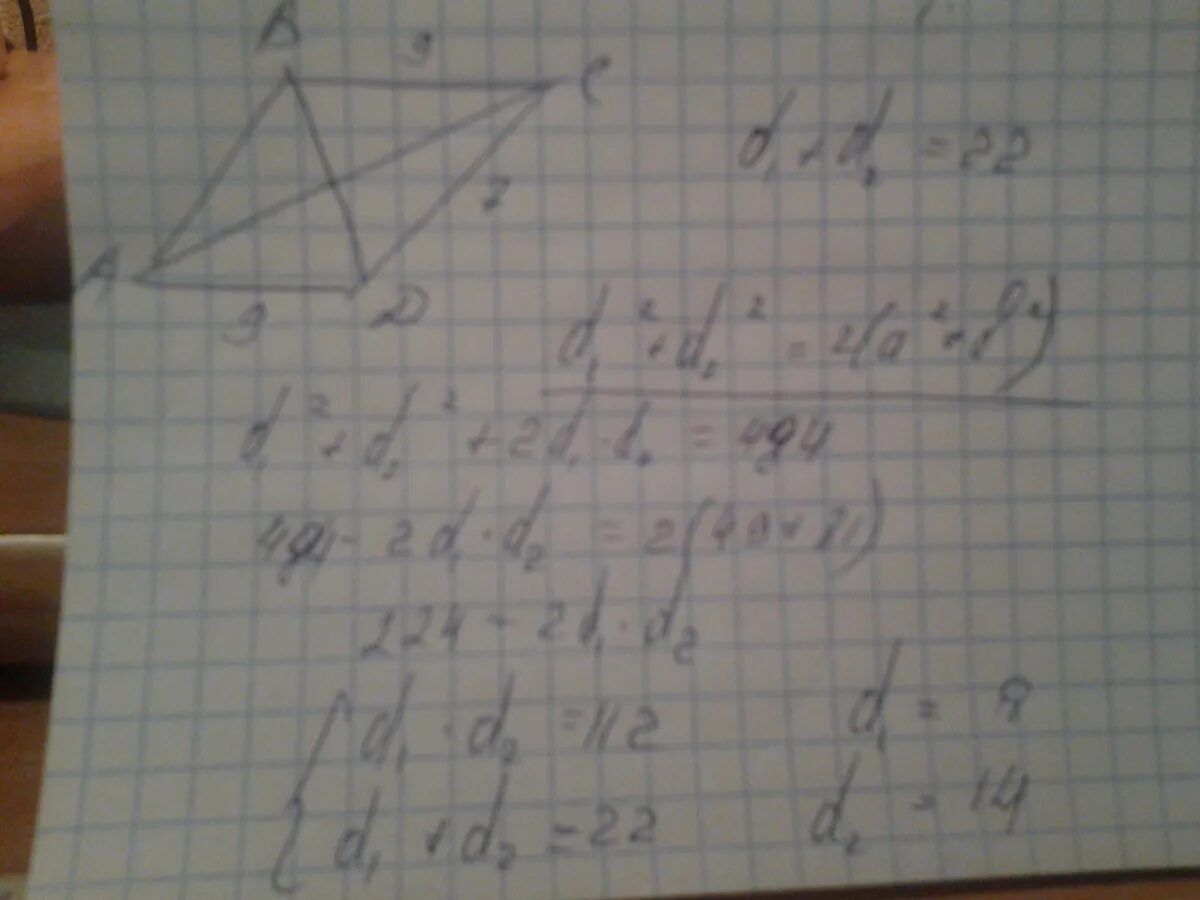 B
9
C
d₁ + d₂ = 22
7
A
9
D
d₁² + d₂² = 2(a² + b²)
d₁² + d₂² + 2d₁ · d₂ = 484
484 - 2d₁ · d₂ = 2(49 + 81)
224 = 2d₁ · d₂
d₁ · d₂ = 112
d₁ = 8
d₁ + d₂ = 22
d₂ = 14